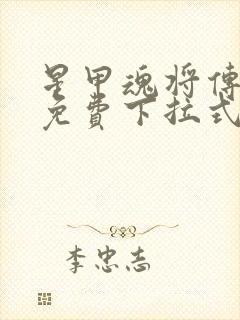 星甲魂将傳
免費下拉式
李忠志